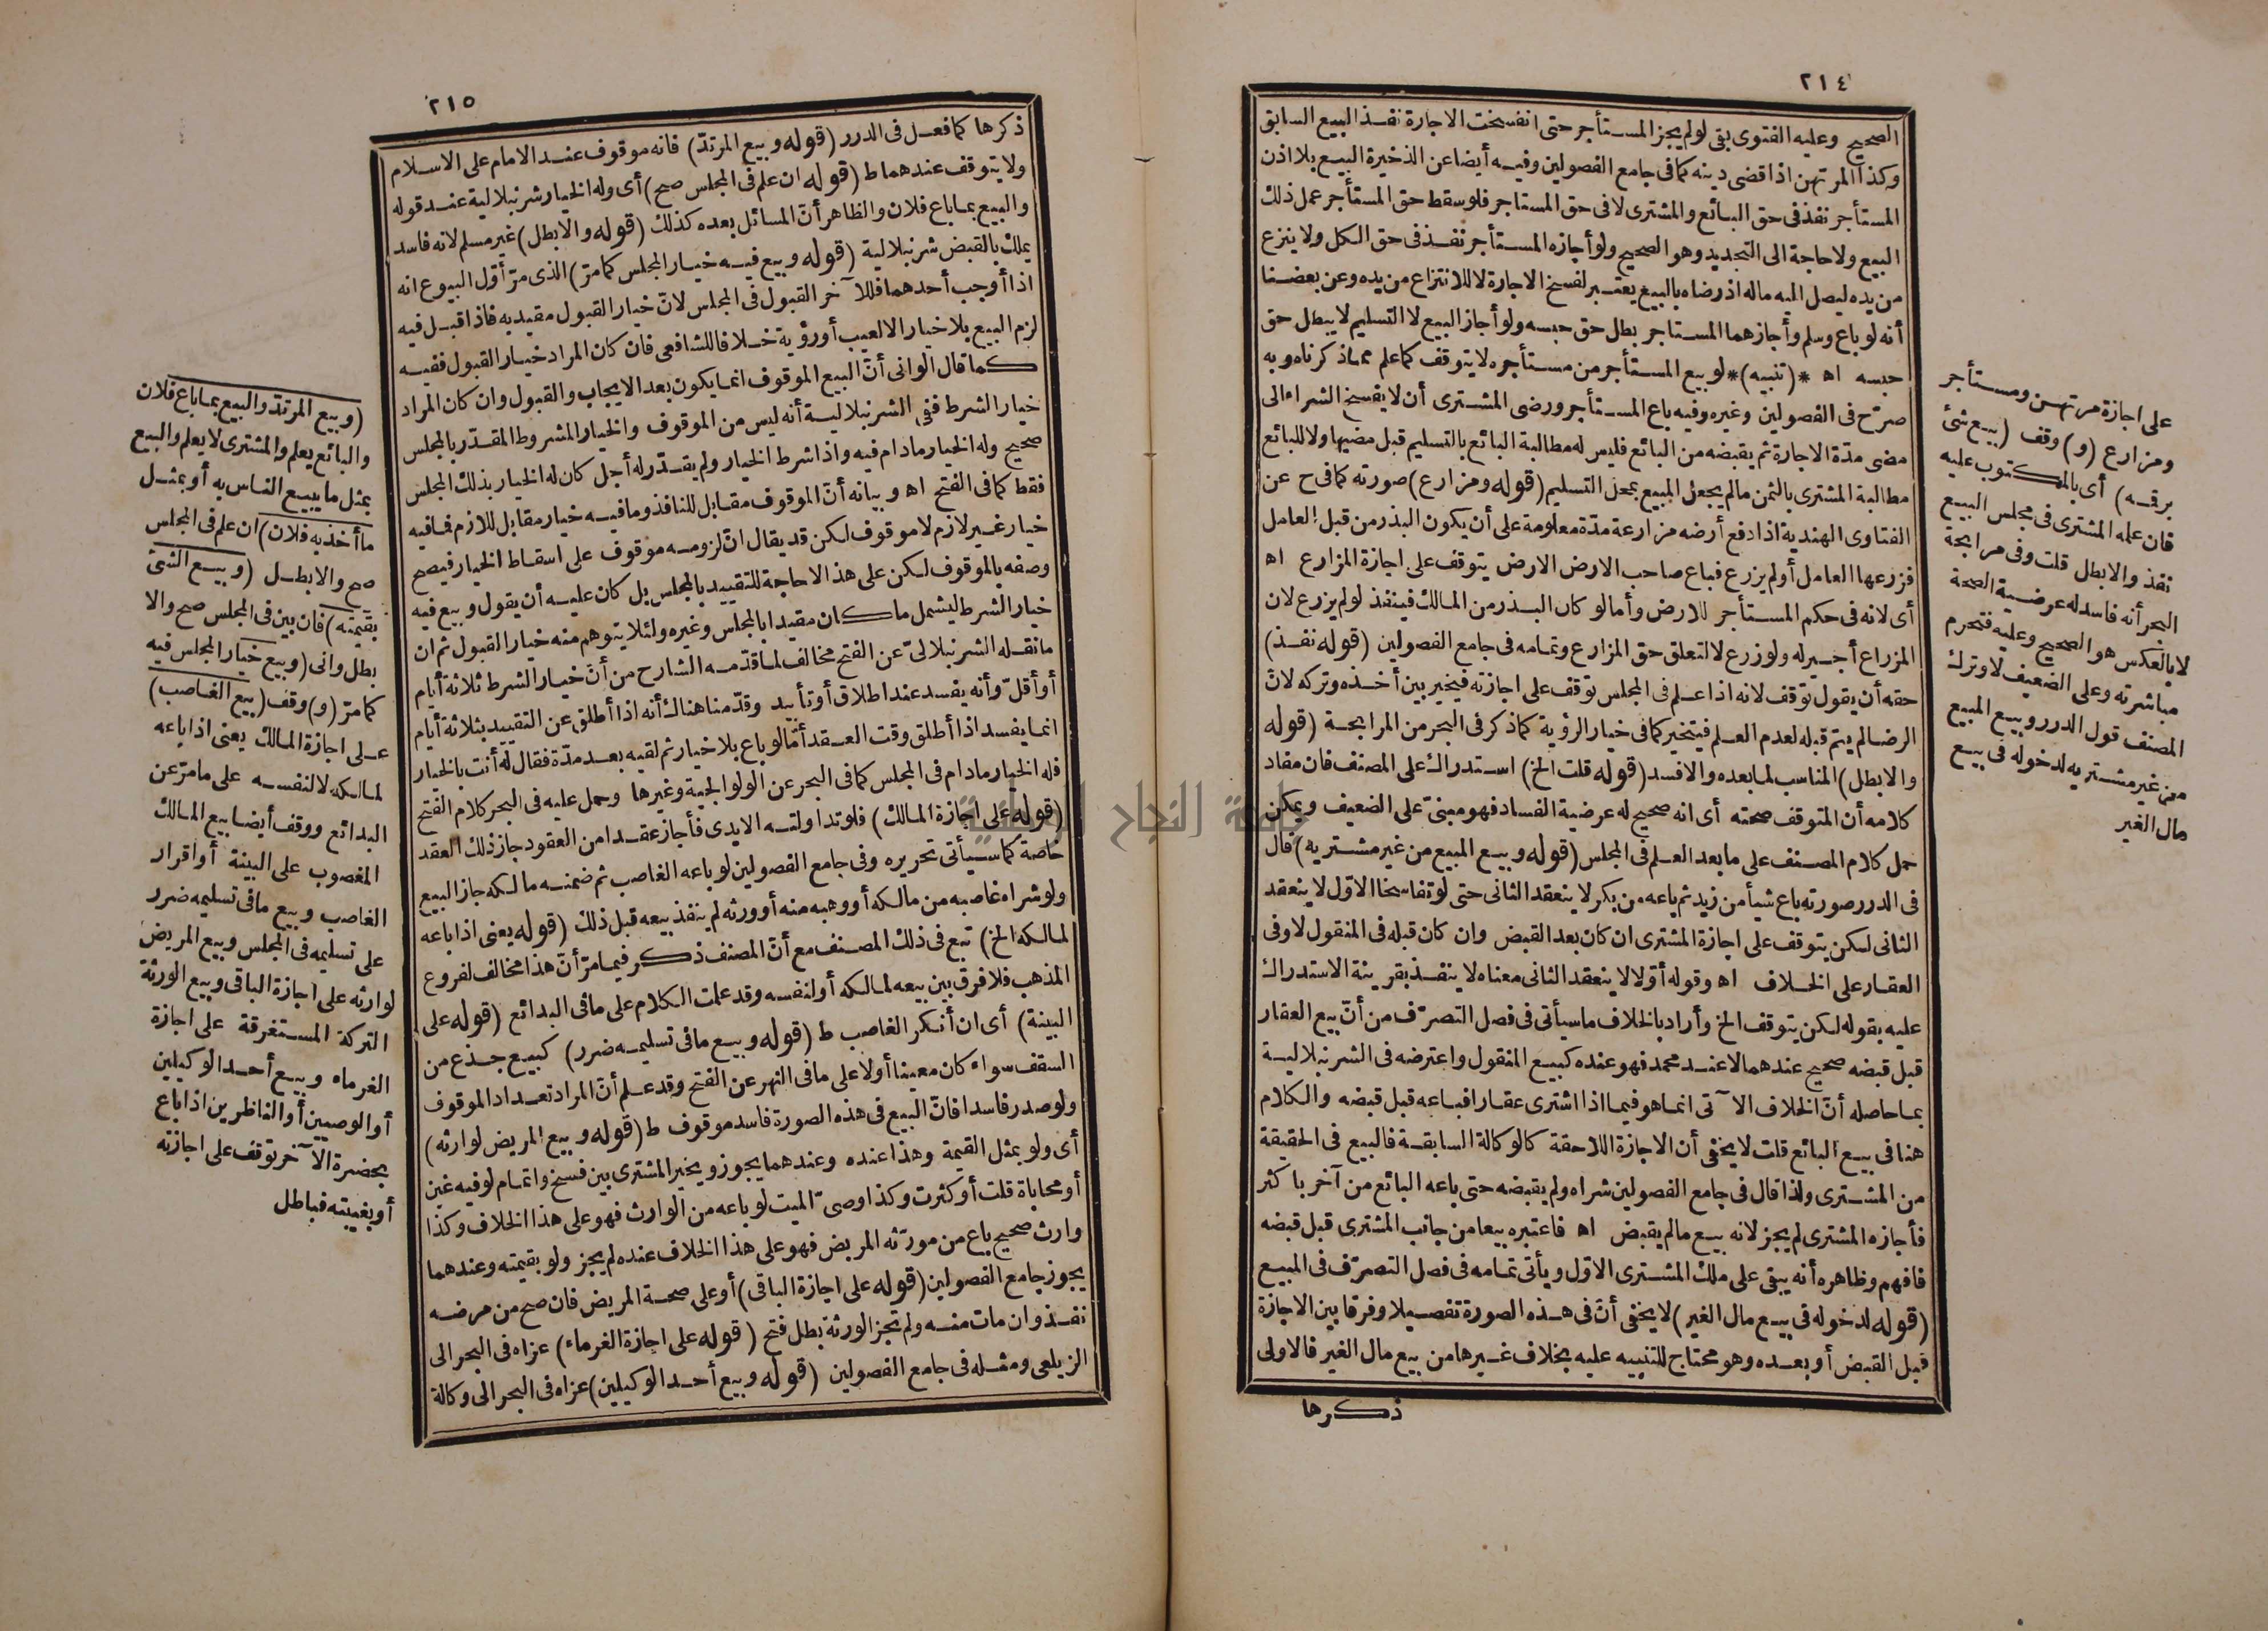 ٢١٤
الصحيح وعليه الفتوى بقى لو لم يجز المستأجر حتى انفسخت الاجارة نفذ البيع السابق
وكذا المرتهن اذا قضى دينه كما فى جامع الفصولين وفيه أيضا عن الذخيرة البيع بلا اذن
المستأجر نفذ فى حق البائع والمشترى لا فى حق المستاجر فلو سقط حق المستأجر عمل ذلك
البيع ولا حاجة الى التجديد وهو الصحيح ولو أجازه المستأجر نفذ فى حق الكل ولا ينزع
من يده ليصل اليه ماله اذ رضاه بالبيع يعتبر لفسخ الاجارة لا للانتزاع من يده وعن بعضنا
أنه لو باع وسلم وأجازهما المستاجر بطل حق حبسه ولو أجاز البيع لا التسليم لا يبطل حق
حبسه اه *(تنبيه)* لو بيع المستأجر من مستأجره لا يتوقف كما علم مما ذكرناه وبه
صرّح فى الفصولين وغيره وفيه باع المستأجر ورضى المشترى أن لا يفسخ الشراء الى
مضى مدّة الاجارة ثم يقبضه من البائع فليس له مطالبة البائع بالتسليم قبل مضيها ولا للبائع
مطالبة المشترى بالثمن ما لم يجعل المبيع بمحل التسليم (قوله ومزارع) صورته كما فى ح عن
الفتاوى الهندية اذا دفع أرضه مزارعة مدّة معلومة على أن يكون البذر من قبل العامل
فزرعها العامل أو لم يزرع فباع صاحب الارض الارض يتوقف على اجازة المزارع اه
أى لانه فى حكم المستأجر للارض وأما لو كان البذر من المالك فينفذ لو لم يزرع لان
المزراع أجير له ولو زرع لا لتعلق حق المزارع وتمامه فى جامع الفصولين (قوله نفذ)
حقه أن يقول توقف لانه اذا علم فى المجلس توقف على اجازته فيخير بين أخذه وتركه لانّ
الرضا لم يتم قبله لعدم العلم فيتخير كما فى خيار الرؤية كما ذكر فى البحر من المرابحة (قوله
والابطل) المناسب لما بعده والافسد (قوله قلت الخ) استدراك على المصنف فان مفاد
كلامه أن المتوقف صحته أى انه صحيح له عرضية الفساد فهو مبنىّ على الضعيف ويمكن
حمل كلام المصنف على ما بعد العلم فى المجلس (قوله وبيع المبيع من غير مشتريه) قال
فى الدرر صورته باع شيأ من زيد ثم باعه من بكر لا ينعقد الثانى حتى لو تفاسخا الاوّل لا ينعقد
الثانى لكن يتوقف على اجازة المشترى ان كان بعد القبض وان كان قبله فى المنقول لا وفى
العقار على الخلاف اه وقوله أوّلا لا ينعقد الثانى معناه لا ينفذ بقرينة الاستدراك
عليه بقوله لكن يتوقف الخ وأراد بالخلاف ما سيأتى فى فصل التصرّف من أنّ بيع العقار
قبل قبضه صحيح عندهما لا عند محمد فهو عنده كبيع المنقول واعترضه فى الشرنبلالية
بما حاصله أنّ الخلاف الآتى انما هو فيما اذا اشترى عقارا فباعه قبل قبضه والكلام
هنا فى بيع البائع قلت لا يخفى أن الاجازة اللاحقة كالوكالة السابقة فالبيع فى الحقيقة
من المشترى ولذا قال فى جامع الفصولين شراه ولم يقبضه حتى باعه البائع من آخر باكثر
فأجازه المشترى لم يجز لانه بيع ما لم يقبض اه فاعتبره بيعا من جانب المشترى قبل قبضه
فافهم وظاهره أنه يبقى على ملك المشترى الاوّل ويأتى تمامه فى فصل التصرّف فى المبيع
(قوله لدخوله فى بيع مال الغير) لا يخفى أنّ فى هذه الصورة تفصيلا وفرقا بين الاجازة
قبل القبض أو بعده وهو محتاج للتنبيه عليه بخلاف غيرها من بيع مال الغير فالاولى
ذكرها
على اجازة مرتهن ومستأجر
ومزارع (و) وقف (بيع شئ
برقمه) أى بالمكتوب عليه
فان علمه المشترى فى مجلس البيع
نفذ والابطل قلت وفى مرابحة
البحر أنه فاسد له عرضية الصحة
لا بالعكس هو الصحيح وعليه فتحرم
مباشرته وعلى الضعيف لا وترك
المصنف قول الدرر وبيع المبيع
من غير مشتريه لدخوله فى بيع
مال الغير
٢١٥
ذكرها كما فعل فى الدرر (قوله وبيع المرتدّ) فانه موقوف عند الامام على الاسلام
ولا يتوقف عندهما ط (قوله ان علم فى المجلس صح) أى وله الخيار شرنبلالية عند قوله
والبيع بما باع فلان والظاهر أنّ المسائل بعده كذلك (قوله والابطل) غير مسلم لانه فاسد
يملك بالقبض شرنبلالية (قوله وبيع فيه خيار المجلس كما مرّ) الذى مرّ أوّل البيوع انه
اذا أوجب أحدهما فللآخر القبول فى المجلس لانّ خيار القبول مقيد به فاذا قبل فيه
لزم البيع بلا خيار الا لعيب أو رؤية خلافا للشافعى فان كان المراد خيار القبول ففيه
كما قال الوانى أنّ البيع الموقوف انما يكون بعد الايجاب والقبول وان كان المراد
خيار الشرط ففى الشرنبلالية أنه ليس من الموقوف والخيار المشروط المقدّر بالمجلس
صحيح وله الخيار مادام فيه واذا شرط الخيار ولم يقدّر له أجل كان له الخيار بذلك المجلس
فقط كما فى الفتح اه وبيانه أنّ الموقوف مقابل للنافذ وما فيه خيار مقابل للازم فما فيه
خيار غير لازم لا موقوف لكن قد يقال انّ لزومه موقوف على اسقاط الخيار فيصح
وصفه بالموقوف لكن على هذا لا حاجة للتقييد بالمجلس بل كان عليه أن يقول وبيع فيه
خيار الشرط ليشمل ما كان مقيدا بالمجلس وغيره ولئلا يتوهم منه خيار القبول ثم ان
ما نقله الشرنبلالىّ عن الفتح مخالف لما قدّمه الشارح من أنّ خيار الشرط ثلاثة أيام
أو أقلّ وأنه يفسد عند اطلاق أو تأبيد وقدّمنا هناك أنه اذا أطلق عن التقييد بثلاثة أيام
انما يفسد اذا أطلق وقت العقد أمّا لو باع بلا خيار ثم لقيه بعد مدّة فقال له أنت بالخيار
فله الخيار مادام فى المجلس كما فى البحر عن الولوالجية وغيرها وحمل عليه فى البحر كلام الفتح
(قوله على اجازة المالك) فلو تداولته الايدى فأجاز عقدا من العقود جاز ذلك العقد
خاصة كما سيأتى تحريره وفى جامع الفصولين لو باعه الغاصب ثم ضمنه مالكه جاز البيع
ولو شراه غاصبه من مالكه أو وهبه منه أو ورثه لم ينفذ بيعه قبل ذلك (قوله يعنى اذا باعه
لمالكه الخ) تبع فى ذلك المصنف مع أنّ المصنف ذكر فيما مرّ أنّ هذا مخالف لفروع
المذهب فلا فرق بين بيعه لمالكه أو لنفسه وقد علمت الكلام على ما فى البدائع (قوله على
البينة) أى ان أنكر الغاصب ط (قوله وبيع ما فى تسليمه ضرر) كبيع جذع من
السقف سواء كان معينا أولا على ما فى النهر عن الفتح وقد علم أنّ المراد تعداد الموقوف
ولو صدر فاسدا فانّ البيع فى هذه الصورة فاسد موقوف ط (قوله وبيع المريض لوارثه)
أى ولو بمثل القيمة وهذا عنده وعندهما يجوز ويخير المشترى بين فسخ واتمام لو فيه غبن
أو محاباة قلت أو كثرت وكذا وصىّ الميت لو باعه من الوارث فهو على هذا الخلاف وكذا
وارث صحيح باع من مورّثه المريض فهو على هذا الخلاف عنده لم يجز ولو بقيمته وعندهما
يجوز جامع الفصولين (قوله على اجازة الباقى) أو على صحة المريض فان صح من مرضه
نفذ وان مات منه ولم تجز الورثة بطل فتح (قوله على اجازة الغرماء) عزاه فى البحر الى
الزيلعى ومثله فى جامع الفصولين (قوله وبيع أحد الوكيلين) عزاه فى البحر الى وكالة
(وبيع المرتدّ والبيع بما باع فلان
والبائع يعلم والمشترى لا يعلم والبيع
بمثل ما يبيع الناس به أو بمثل
ما أخذ به فلان) ان علم فى المجلس
صح والابطل (وبيع الشئ
بقيمته) فان بين فى المجلس صح والا
بطل وانى (وبيع خيار المجلس فيه
كما مرّ (و) وقف (بيع الغاصب)
على اجازة المالك يعنى اذا باعه
لمالكه لا لنفسه على ما مرّ عن
البدائع ووقف أيضا بيع المالك
المغصوب على البينة أو اقرار
الغاصب وبيع ما فى تسليمه ضرر
على تسليمه فى المجلس وبيع المريض
لوارثه على اجازة الباقى وبيع الورثة
التركة المستغرقة على اجازة
الغرماء وبيع أحد الوكيلين
أو الوصيين أو الناظرين اذا باع
بحضرة الآخر توقف على اجازته
أو بغيبته فباطل